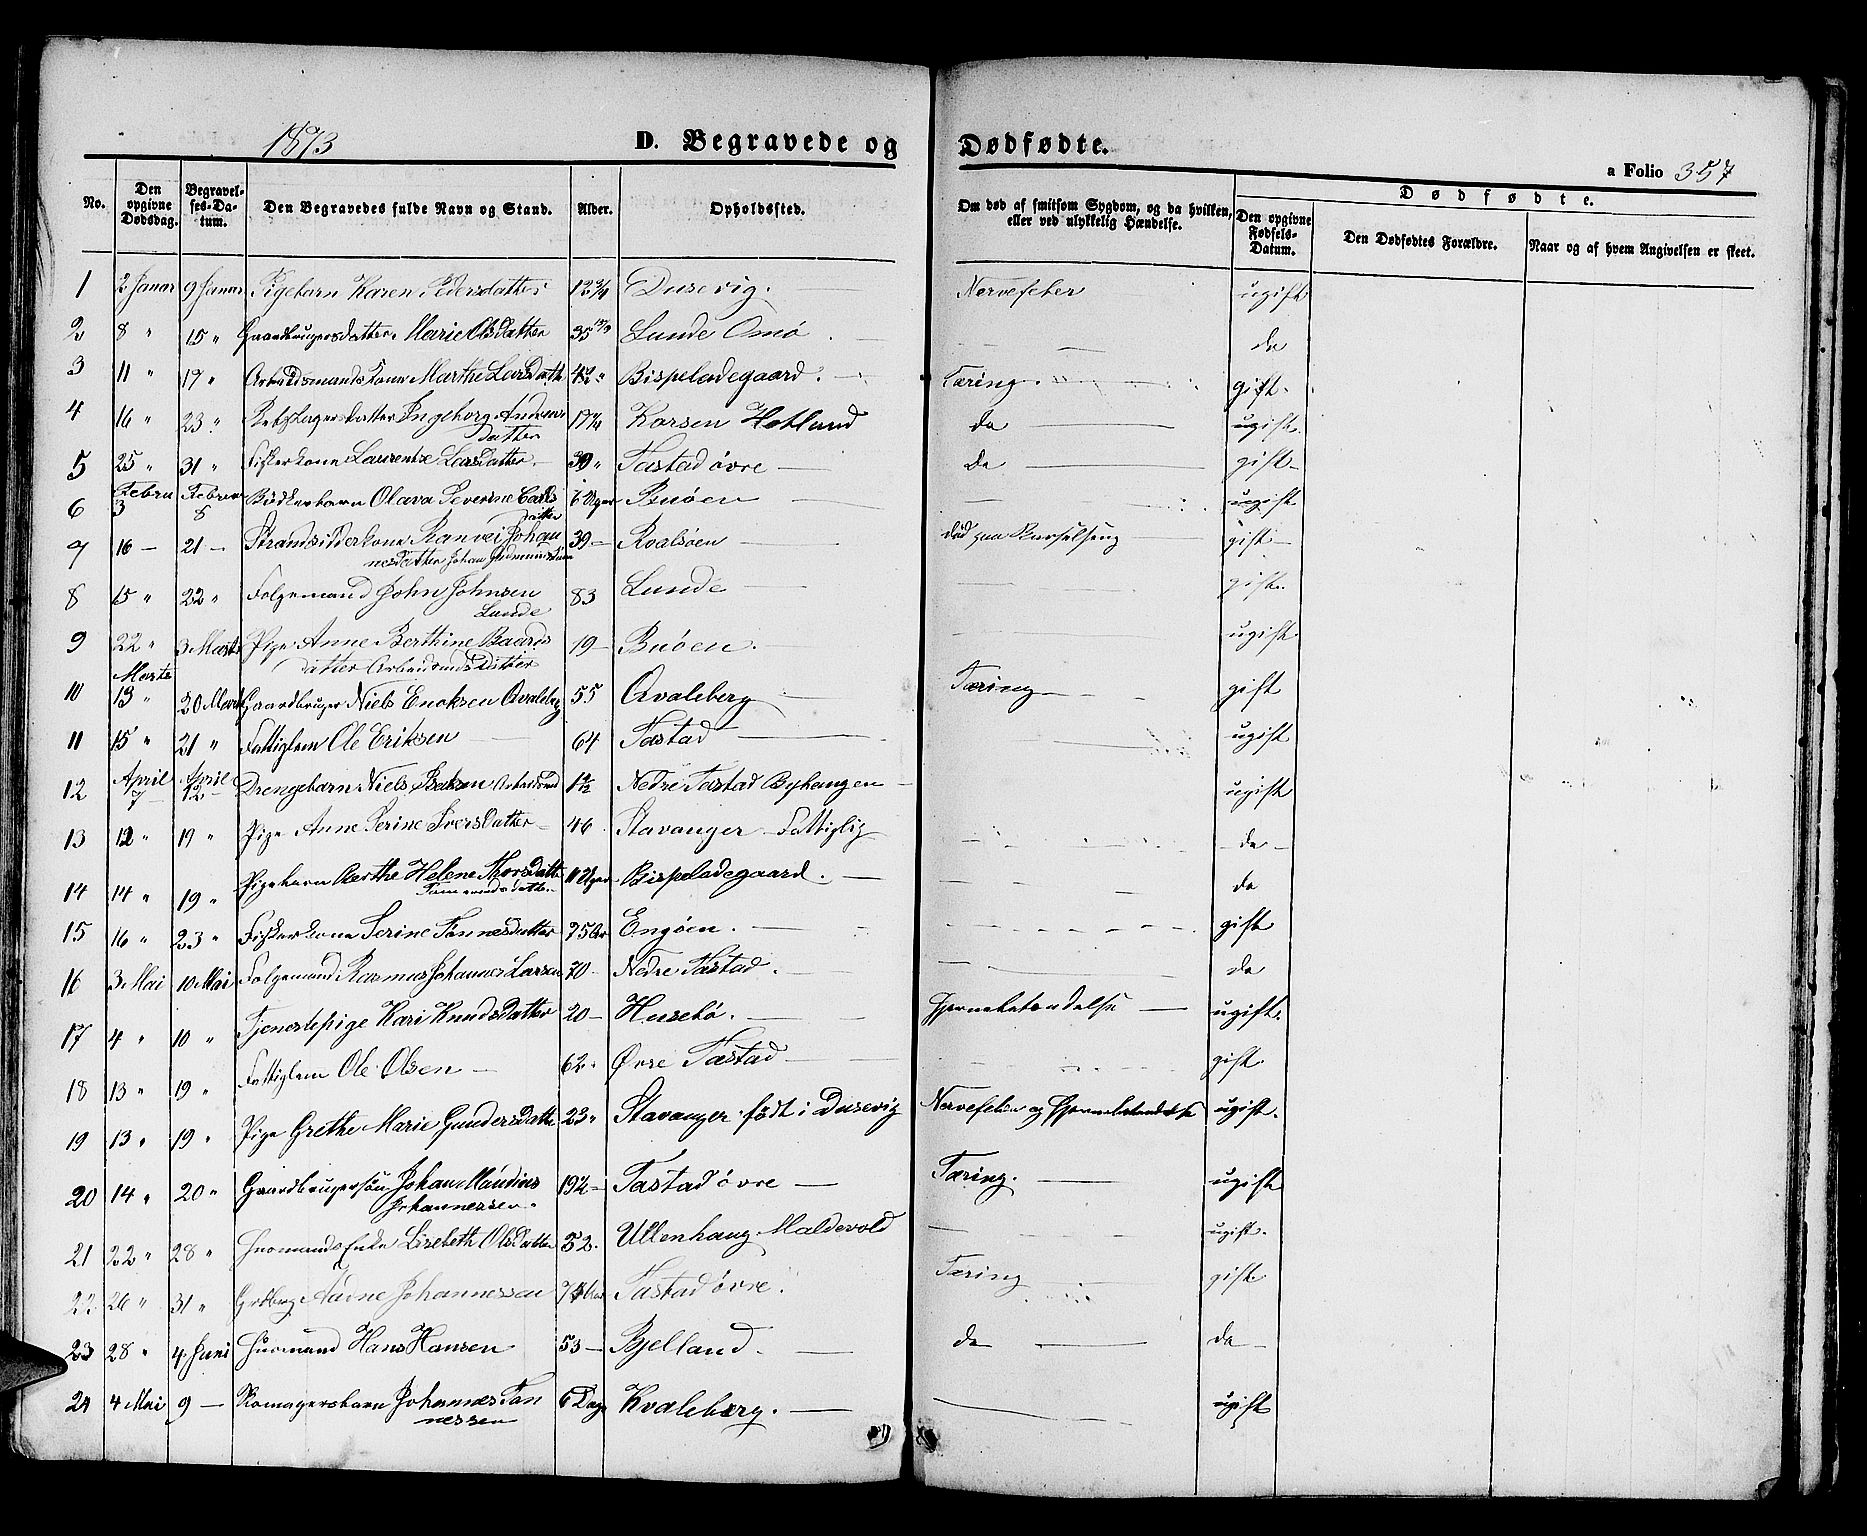 1873 D. Begravede og Dødfødte.
a Folio 357
No. Den opgivne Dødsdag. Begravelses-Datum. Den Begravedes fulde Navn og Stand. Alder. Opholdssted. Om død af smitsom Sygdom, og da hvilken, eller ved ulykkelig Hændelse. Dødfødte. Den opgivne Fødsels-Datum. Den Dødfødtes Forældre. Naar og af hvem Angivelsen er skeet.
1 2 Januar 9 Januar Pigebarn Karen Pedersdatter 12 3/4 Dusevig. Nervefeber ugift
2 8 " 15 " Gaardbrugersdatter Marie Olsdatter 35 Lunde Omø — da
3 11 " 17 " Arbeidsmandskone Marthe Larsdatt 42 " Bispeladegaard. Tæring. gift.
4 16 " 23 " datter Ingeborg Andreas
datter 17 Hetland da — ugift.
5 25 " 31 " Fiskerkone Laurentze Larsdatter — 30 " Tastad øvre — da — gift —
6 Febru 3 Februar 8 Bødkerbarn Olava Severine Carls
datter 7 Uger Buøen — ugift
7 16 — 21 — Strandsidderkone Ranvei Johan
nesdatter Johan 39 — Roalsøen — død paa Barselseng gift —
8 15 " 22 " Folgemand John Johnsen
Lunde 83 Lunde — gift.
9 22 " 3 Marts Pige Anne Berthine Baards
datter Arbeidsmds datter 19 — Buøen. ugift
10 Marts 13 " 20 Marts Gaardbruger Niels Enoksen Qvaleberg 55 Qvaleberg — Tæring — gift
11 15 " 21 " Fattiglem Ole Eriksen — 64 Tastad — ugift
12 April 7 April 12 — Drengebarn Niels Arbeidsmd 1 1/2 Nedre Tastad Byhaugen — ugift
13 12 " 19 " Pige Anne Serine Iversdatter — 46 Stavanger — Fattiglig — da —
14 14 " 19 " Pigebarn Berthe Helene Thorsdatt
11 Uger Bispeladegaard. — da
15 16 " 23 " Fiskerkone Serine Tønnesdatter 75 Aar Engøen. — gift
16 3 Mai 10 Mai Folgemand Rasmus Johannes Larsen 70 — Nedre Tastad. — da
17 4 " 10 " Tjenestepige Kari Knudsdatter 20 — Husebø. — Hjernebetændelse — ugift.
18 13 " 19 " Fattiglem Ole Olsen — 62 . Øvre Tastad — gift
19 13 " 19 " Pige Grethe Marie Gundersdatte 23 " Stavanger født i Dusevig Nervefeber og Hjernebetændelse ugift.
20 14 " 20 " Gaardbrugersøn Johan Maudius
Johannessen. 19 1/2 — Tastad øvre — Tæring. — ugift
21 22 " 28 " Huusmands Enke Lisebeth Olsdatter 52. Ullenhaug Maldevold — ugift.
22 26 " 31 " Grdbrg Aadne Johannessen 74 Aar Tastad øvre. Tæring gift
23 28 " 4 Juni Huusmand Hans Hansen 53 — Bjelland. — da — da —
24 4 Mai 9 — Komagersbarn Johannes Tøn
nessen 6 Dage Kvaleberg. — ugift